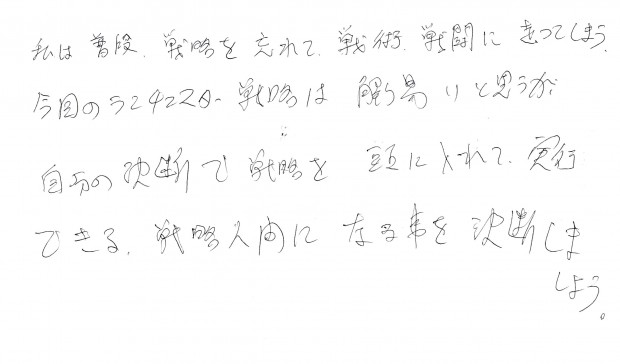 私は普段、戦略を忘れて、戦術、戦闘に走ってしまう。
今回のランチェスター戦略は 解り易いと思うが
自分の決断で戦略を 頭に入れて、実行
できる、戦略人間に なる事を 決断しま
しょう。